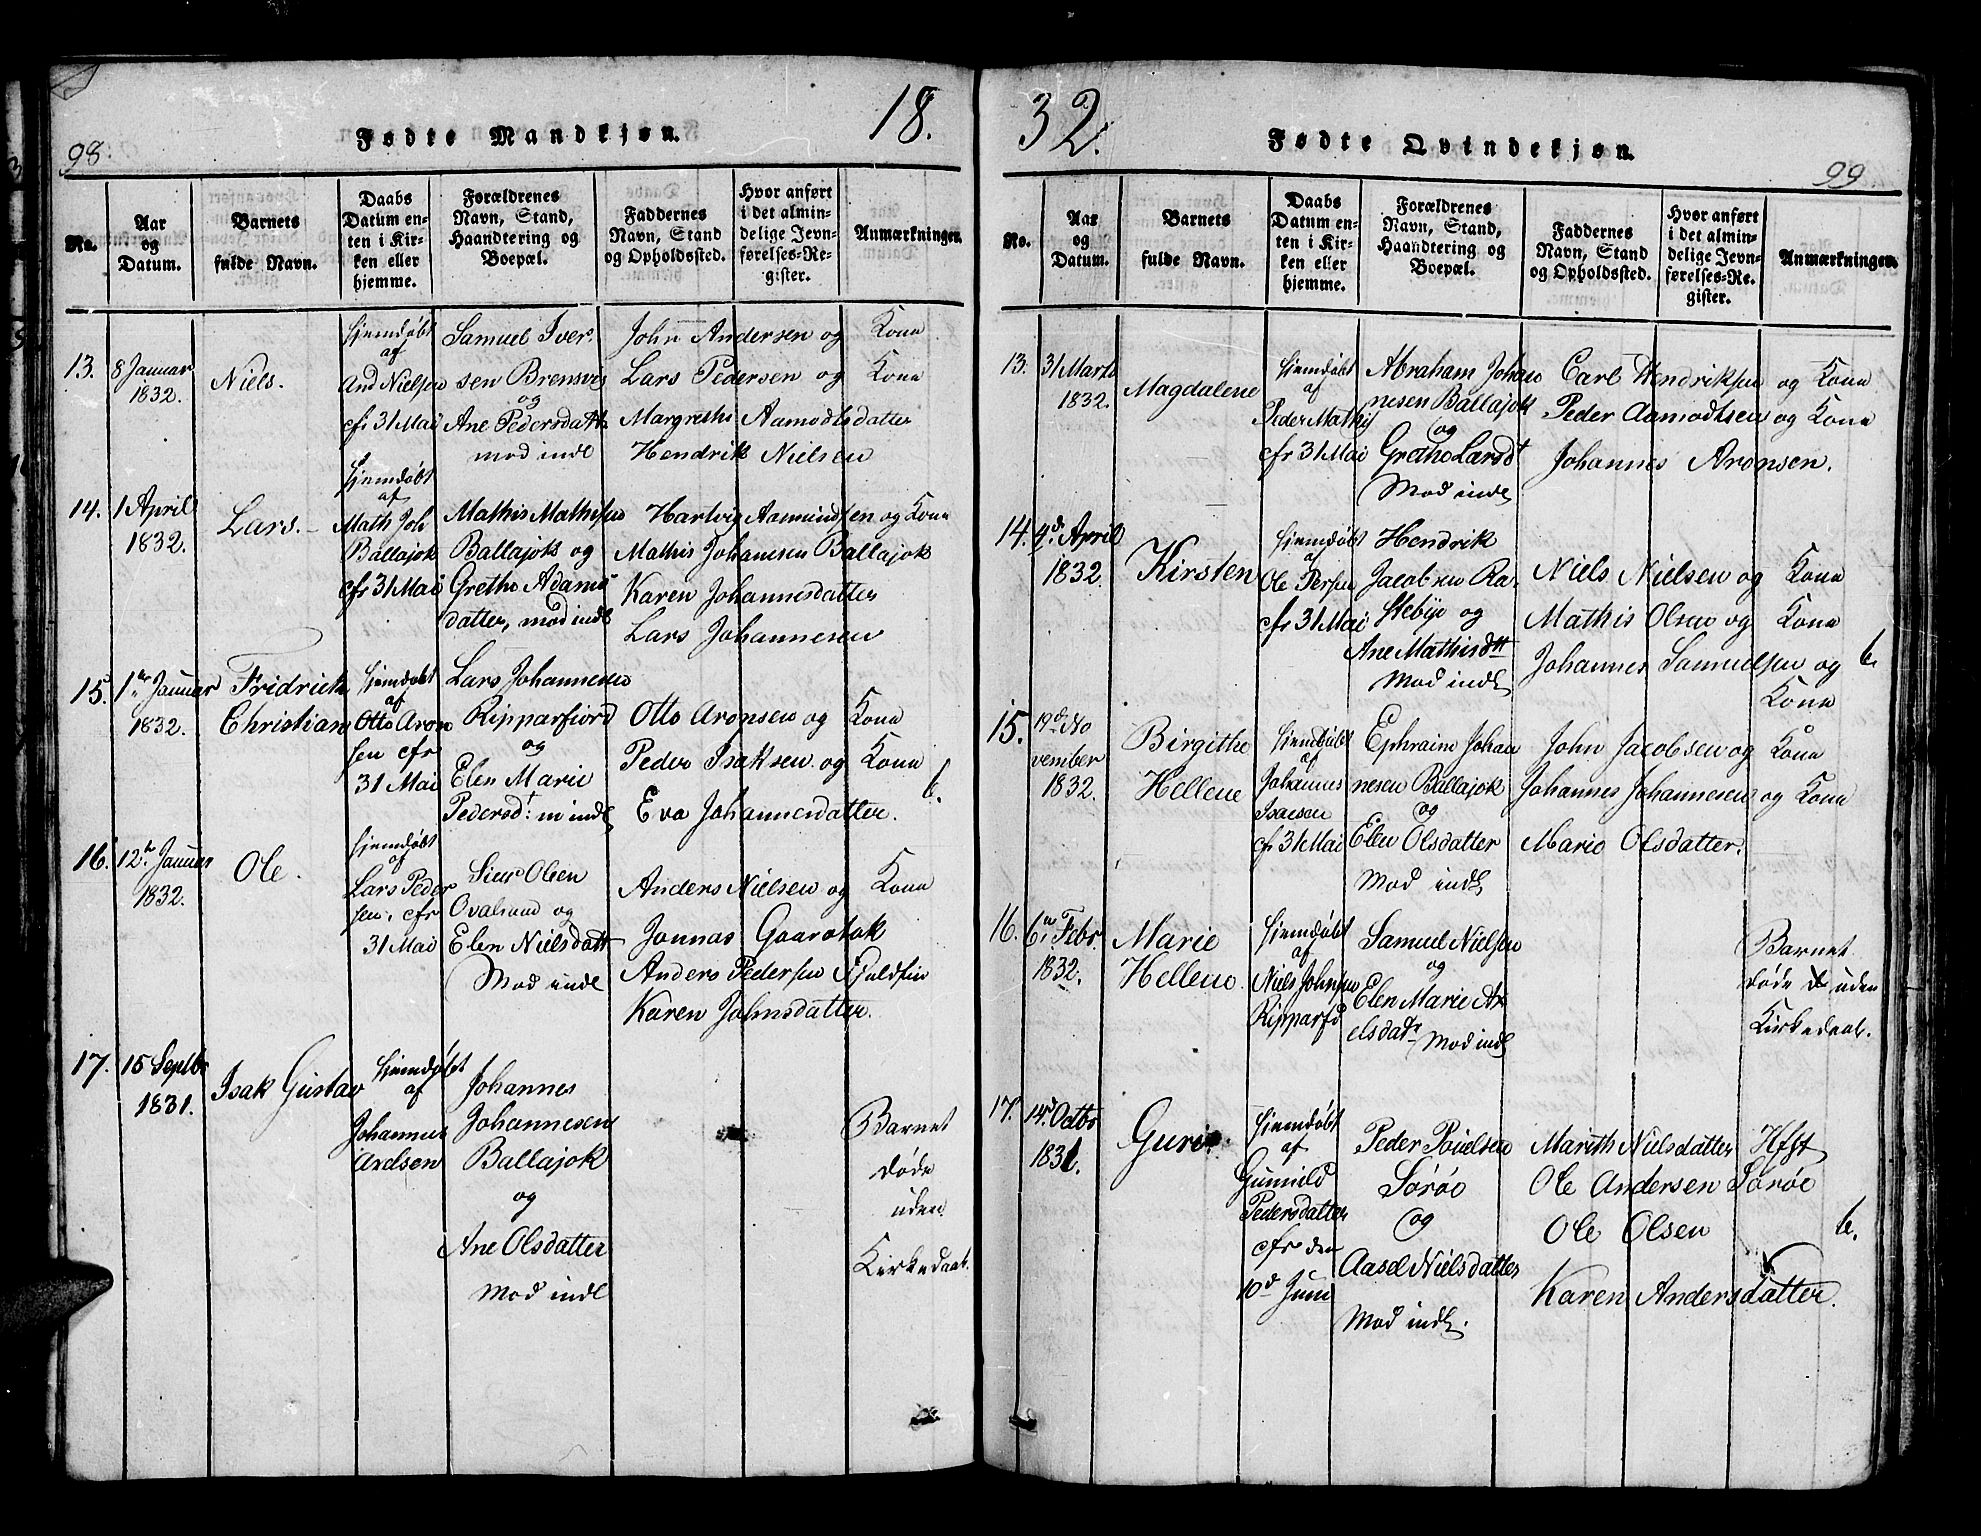 98.
Fødte Mandkjøn.
18.
No.
Aar og Datum.
Barnets fulde Navn.
Daabs Datum enten i Kirken eller hjemme.
Forældrenes Navn, Stand, Haandtering og Boepæl.
Faddernes Navn, Stand og Opholdssted.
Hvor anført i det almindelige Jevnførelses-Register.
Anmærkninger.
13.
8 Januar
1832.
Niels.
hjemdøbt
af
And Nielsen
cfr 31 Mai
Samuel Iver-
sen
og
Ane Pedersdattr
mod indl
John Andersen og Kona
Lars Pedersen og Kona
Margrethe Aamodtsdatter
Hendrik Nielsen
14.
1 April
1832.
Lars.-
hjemdøbt
af
Math Joh
Ballajok
cfr 31 Mai
Mathis Mathisen
Ballajok og
Grethe Adams-
datter, mod indl
Hartvig Aamundsen og Kona
Mathis Johanesen Ballajok
Karen Johannesdatter
Lars Johannesen
15.
1te Januar
1832.
Fridrich
Christian
hjemdøbt
af
Otto Aron
sen cfr
31 Mai
Lars Johannesen
Ripparfiord
og
Elen Marie
Pedersdt: m indl
Otto Aronsen og Kona
Peder Isaksen og Kona
Eva Johannesdatter.
b.
16.
12te Januar
1832.
Ole.
hjemdøbt
af
Lars Peder
sen. cfr
31 Mai
Siur Olsen
Qvalsund og
Elen Nielsdattr
Mod indl
Anders Nielsen og Kona
Jonnas
Anders Pedersen Fjeldfin
Karen Johnsdatter.
17.
15 Septbr
1831.
Isak Gustav
hjemdøbt
af
Johannes
Arelsen
Johannes
Johannesen
Ballajok
og
Ane Olsdatter
Mod indl
Barnet
døde
uden
Kirkedaab.
32.
Fødte Qvindekjøn.
99
No.
Aar og Datum.
Barnets fulde Navn.
Daabs Datum enten i Kirken eller hjemme.
Forældrenes Navn, Stand, Haandtering og Boepæl.
Faddernes Navn, Stand og Opholdssted.
Hvor anført i det almindelige Jevnførelses-Register.
Anmærkninger.
13.
31 Marts
1832.
Magdalene
hjemdøbt
af
Peder Mathis
cfr 31 Mai
Abraham Johan
nesen Ballajok
og
Grethe Larsdt
Mod indl
Carl Hendriksen og Kona
Peder Aamodtsen og Kona
Johannes Aronsen.
14.
9d April
1832.
Kirsten
hjemdøbt
af
Ole Persen
cfr 31 Mai
Hendrik
Jacobsen Ra-
stebye og
Ane Mathisdtt
Mod indl
Niels Nielsen og Kona
Mathis Olsen og Kona
Johannes Samuelsen og
Kona
b.
15.
19d No
vember
1832.
Birgithe
Hellene
hjemdøbt
af
Johannes
Isacsen
cfr 31 Mai
Ephraim Johan
nesen Ballajok
og
Elen Olsdatter
Mod indl
John Jacobsen og Kona
Johannes Johannesen og Kona
Marie Olsdatter.
16.
6te Febr
1832.
Marie
Hellene.
hjemdøbt
af
Niels Johnsen
Ripparfd
Samuel Nielsen
og
Elen Marie Ar
elsdatr Mod indl
Barnet
døde uden
Kirkedaab.
17.
14d Octbr
1831.
Guri
hjemdøbt
af
Gunnild
Pedersdatter
cfr den
10d Juni
Peder Povelsen
Sørøe
og
Aasel Nielsdatter
Mod indl.
Marith Nielsdatter Hfst
Ole Andersen Sørøe
Ole Olsen
Karen Andersdatter.
b.